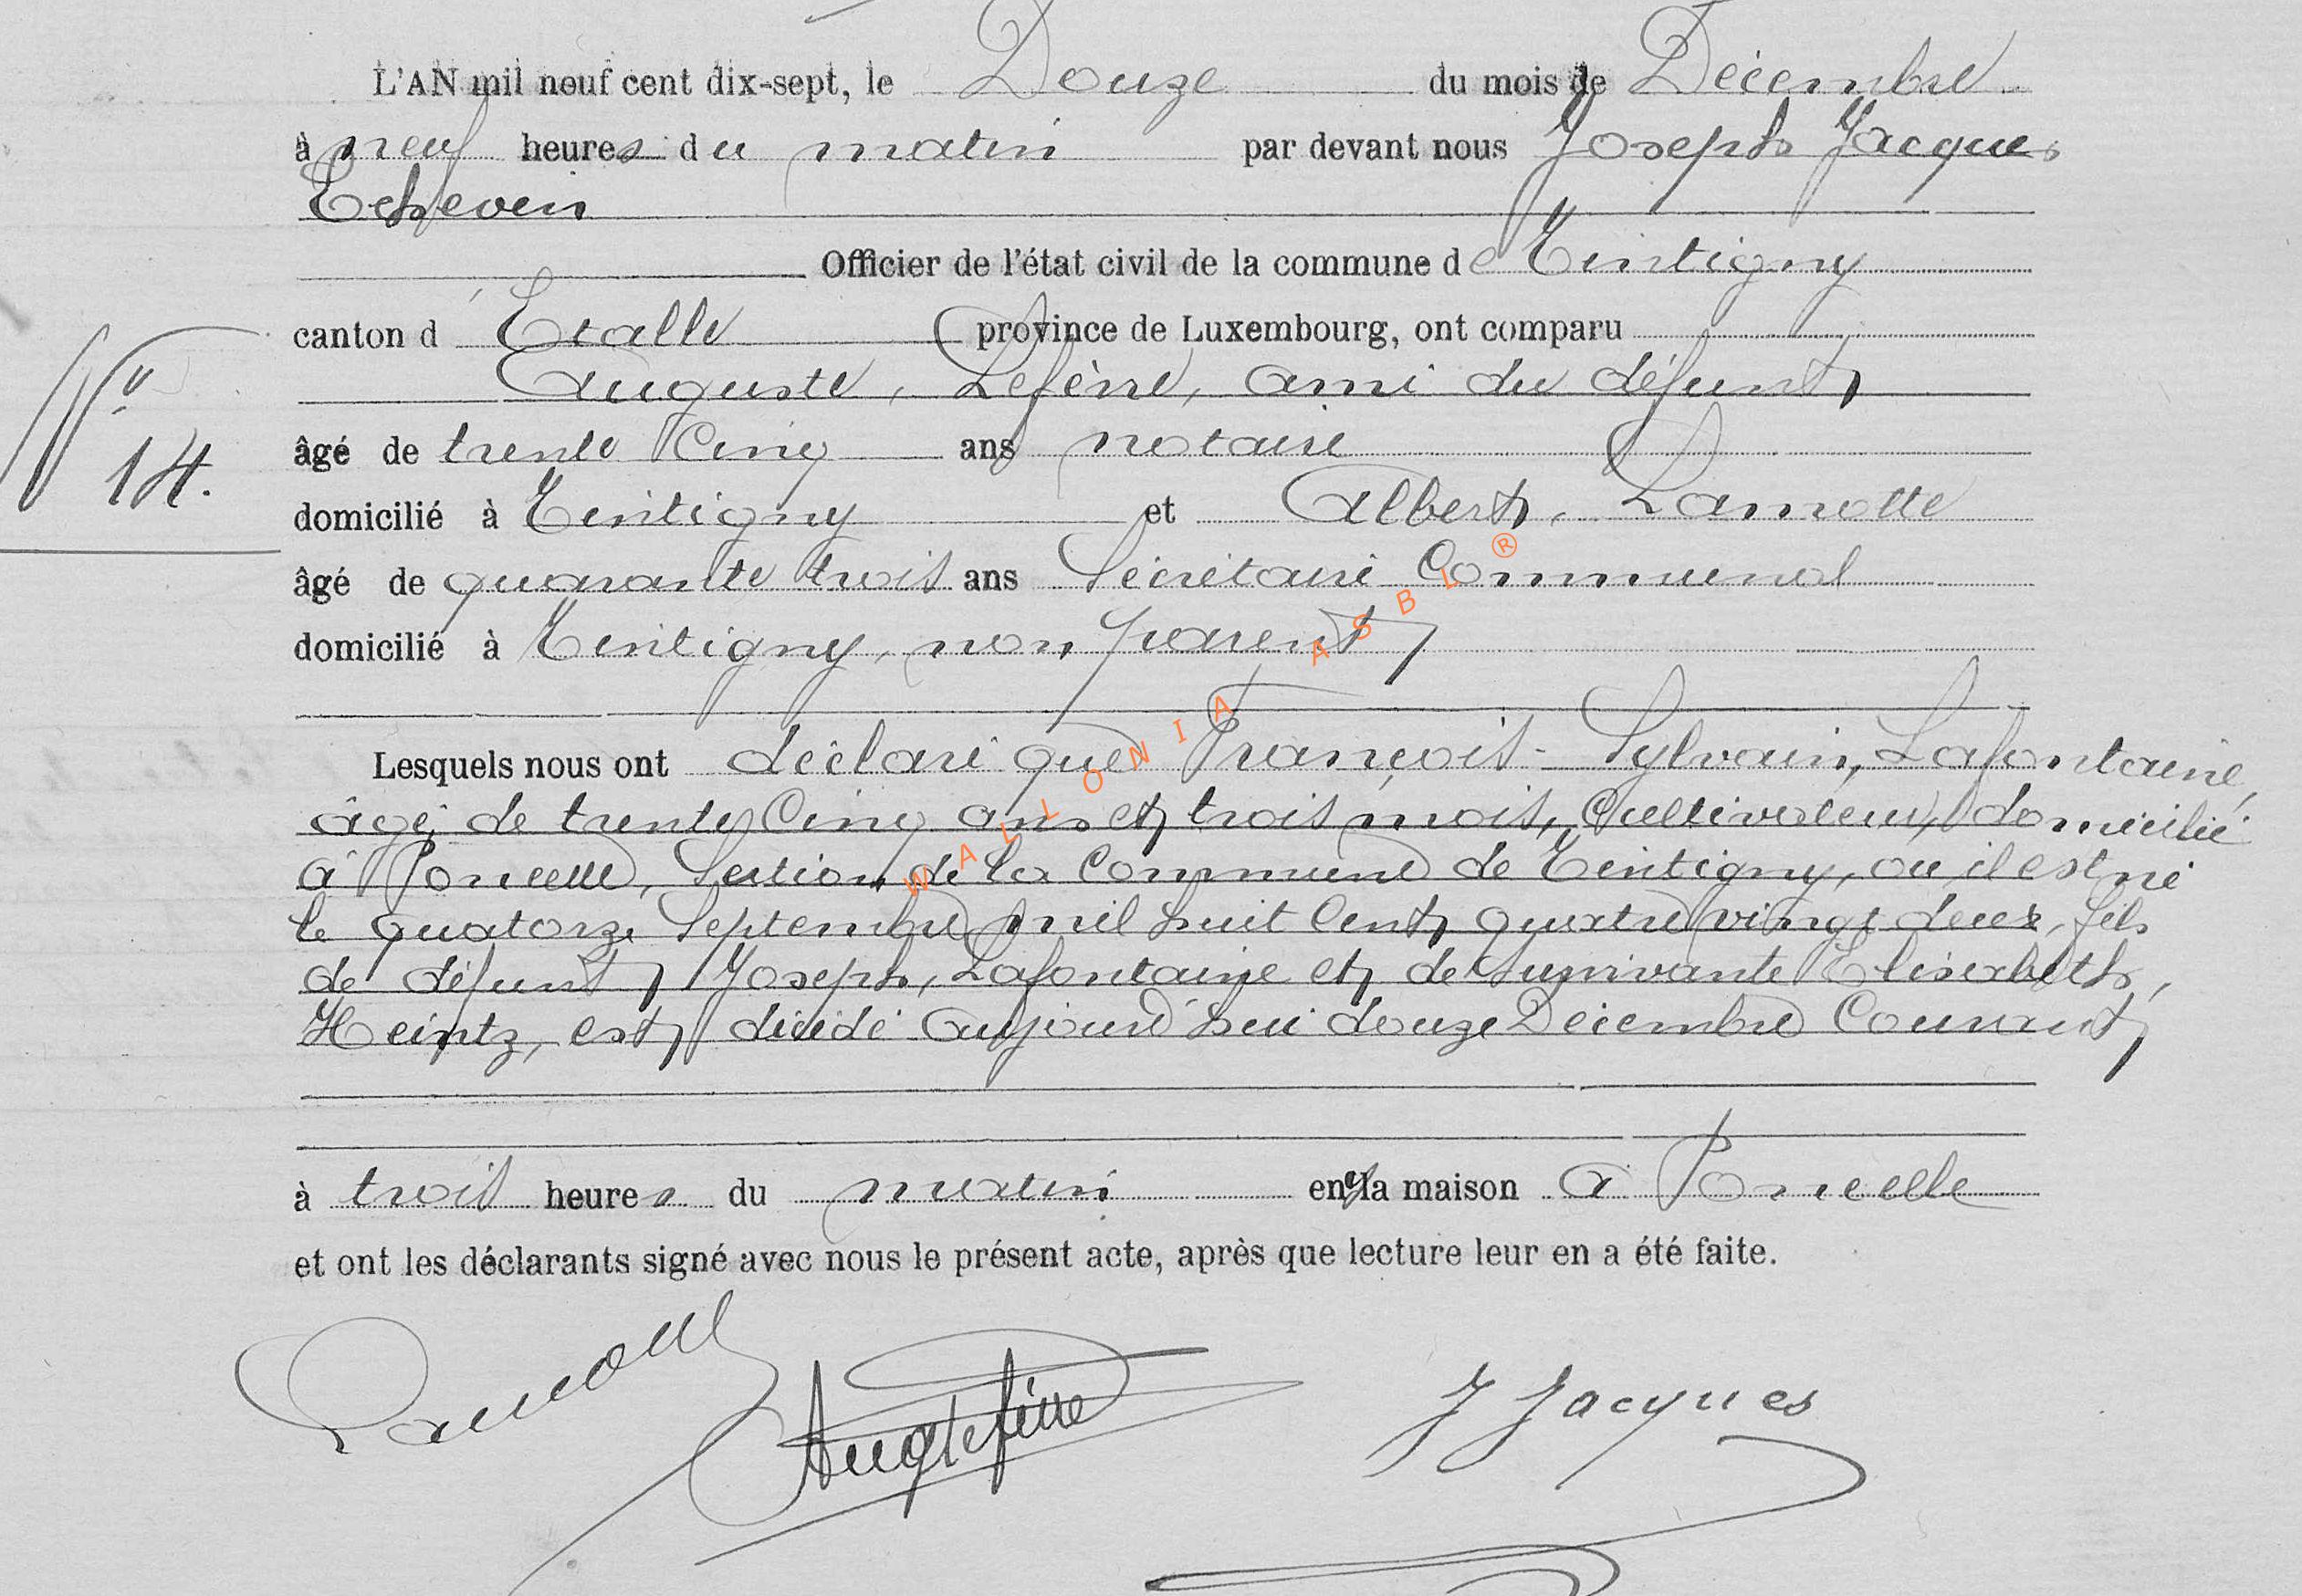 L'AN mil neuf cent dix-sept, le Douze du mois de Décembre
à neuf heures du matin par devant nous Joseph Jacques
Echevin
Officier de l'état civil de la commune de Tintigny
canton d'Etalle province de Luxembourg, ont comparu
Auguste, Lefèvre, ami du défunt
N°
14.
âgé de trente Cinq ans notaire
domicilié à Tintigny et Albert, Lamotte
âgé de quarante trois ans Secrétaire Communal
domicilié à Tintigny, non parent
Lesquels nous ont déclaré que François-Sylvain, Lafontaine,
âgé de trente Cinq ans et trois mois, Cultivateur, domicilié
à Poncelle, Section de la Commune de Tintigny, où il est né
le quatorze Septembre mil huit Cent quatre vingt deux, fils
de défunt Joseph, Lafontaine et de Survivante Elisabeth,
Heintz, est décédé aujourd'hui douze Décembre Courant
à trois heures du matin en sa maison à Poncelle
et ont les déclarants signé avec nous le présent acte, après que lecture leur en a été faite.
Lamotte Aug Lefèvre J Jacques
WALLONIA ASBL ®